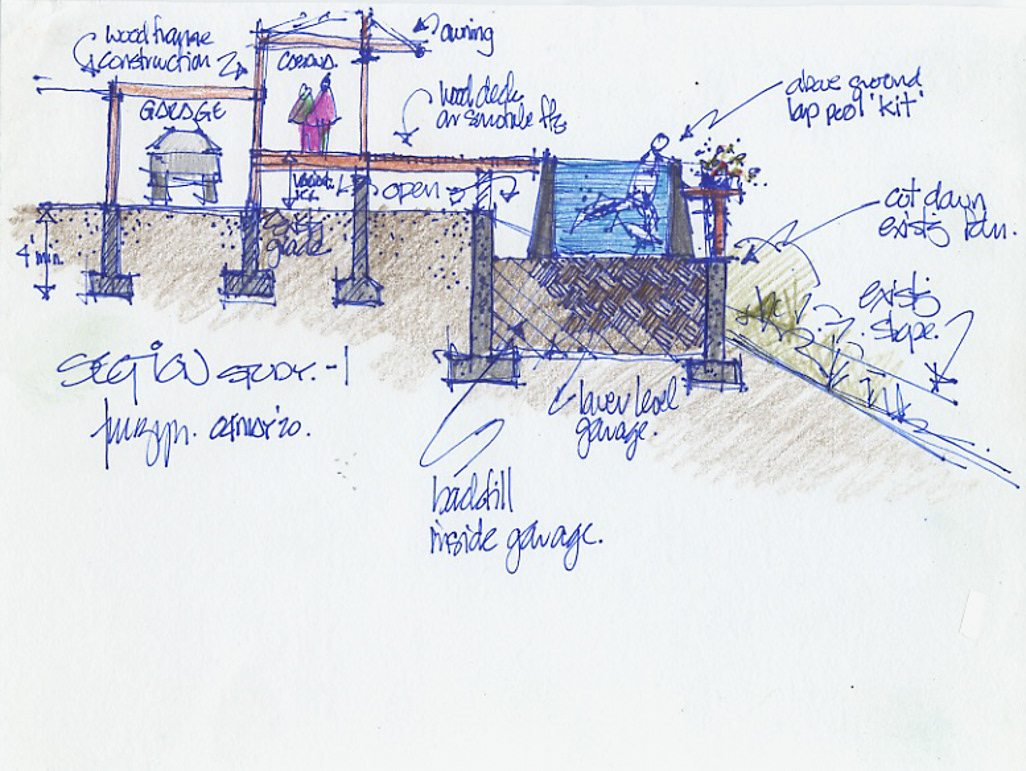 wood frame
construction
awning
GARAGE
wood deck
on
above ground
lap pool 'kit'
open
cut down
existg
4' min.
existg
grade
existg
slope.
SECTION STUDY.-1
lower level
garage.
backfill
inside garage.